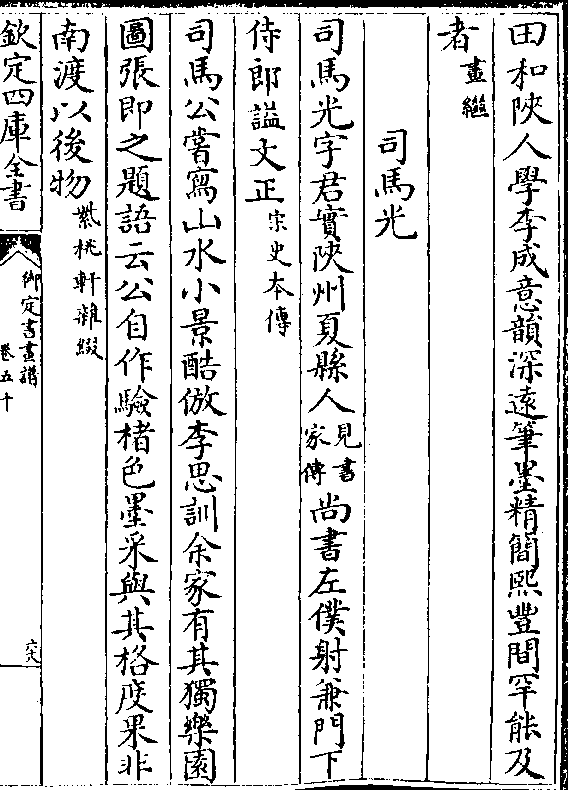 田和陜人學李成意韻深遠筆墨精簡熙豐間罕能及
者畫繼
司馬光
司馬光字君實陜州夏縣人見書家傳尚書左僕射兼門下
侍郎謚文正宋史本傳
司馬公嘗寫山水小景酷倣李思訓余家有其獨樂園
圖張即之題語云公自作驗楮色墨采與其格度果非
南渡以後物紫桃軒雜綴
欽定四庫全書
御定書畫譜
卷五十
六十八